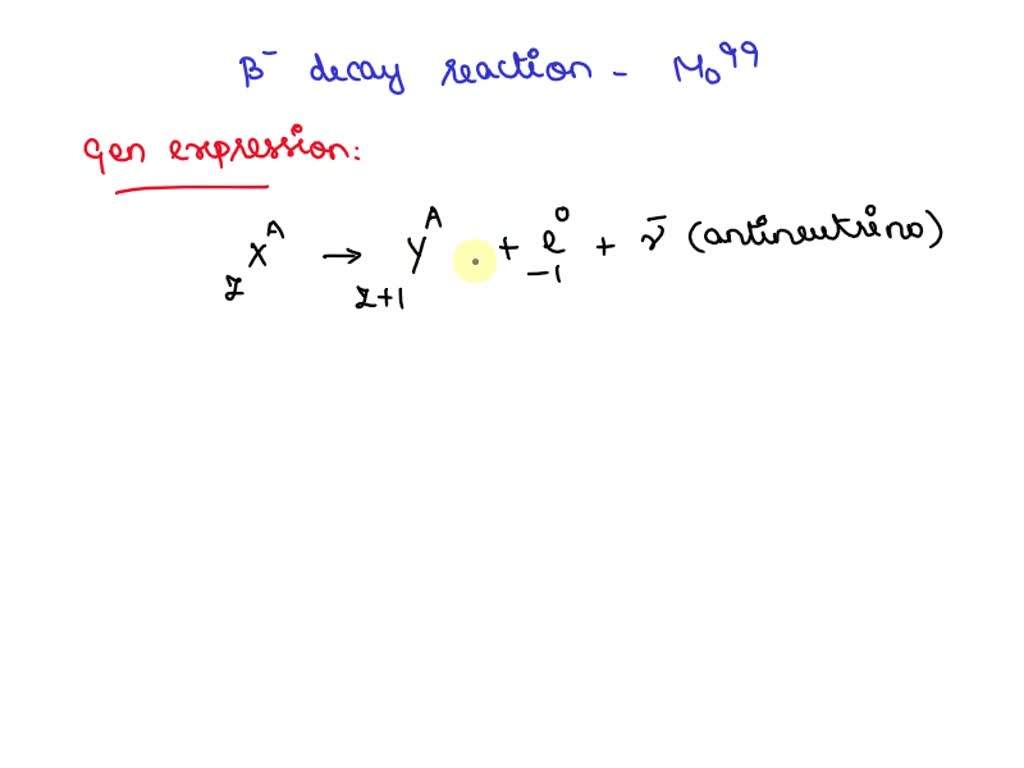 β⁻ decay reaction - Mo⁹⁹
Gen expression:
zXᴬ → z+1Yᴬ + -1e⁰ + ν̄ (antineutrino)